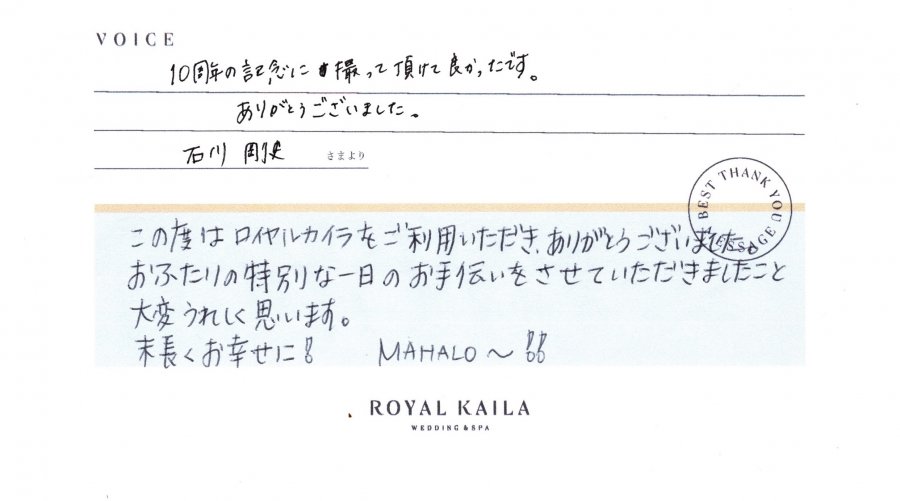 VOICE
10周年の記念に撮って頂けて良かったです。
ありがとうございました。
石川 剛史 さまより
BEST THANK YOU MESSAGE
この度はロイヤルカイラをご利用いただき、ありがとうございました。
おふたりの特別な一日のお手伝いをさせていただきましたこと
大変うれしく思います。
末長くお幸せに! MAHALO〜!!
ROYAL KAILA
WEDDING & SPA